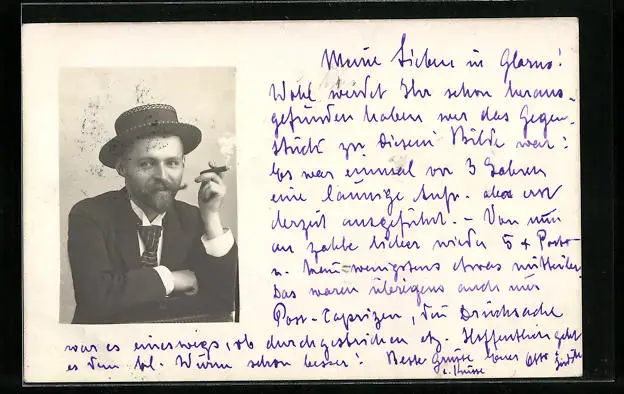 Meine Lieben in Glarus!
Wohl werdet Ihr schon heraus-
gefunden haben wer das Gegen-
stück zu diesem Bilde war:
Es war einmal vor 3 Jahren
eine launige Aufn. aber erst
derzeit ausgeführt. – Von nun
an zahle lieber wieder 5 + Porto
u. wenigstens etwas mitteilen
Das waren übrigens auch nur
Post-Caprizen, Drucksache
war es einerwegs, ob durchgestrichen etz. Hoffentlich geht
es dem lb. Wurm schon besser! Beste Grüsse Euer Otto
u. Küsse